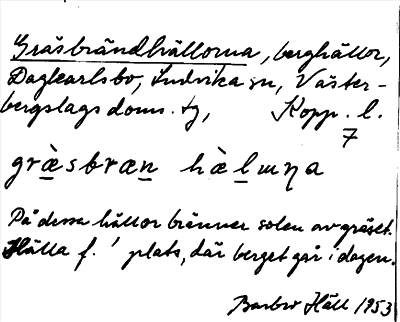 Gräsbrändhällorna, berghällor,
Dagkarlsbo, Ludvika sn, Väster-
bergslags doms. tg, Kopp. l.
7
græ̀sbræn hæ̀lɯηa
På dessa hällor bränner solen av gräset.
Hälla f. ' plats, där berget går i dagen.
Barbro Häll 1953